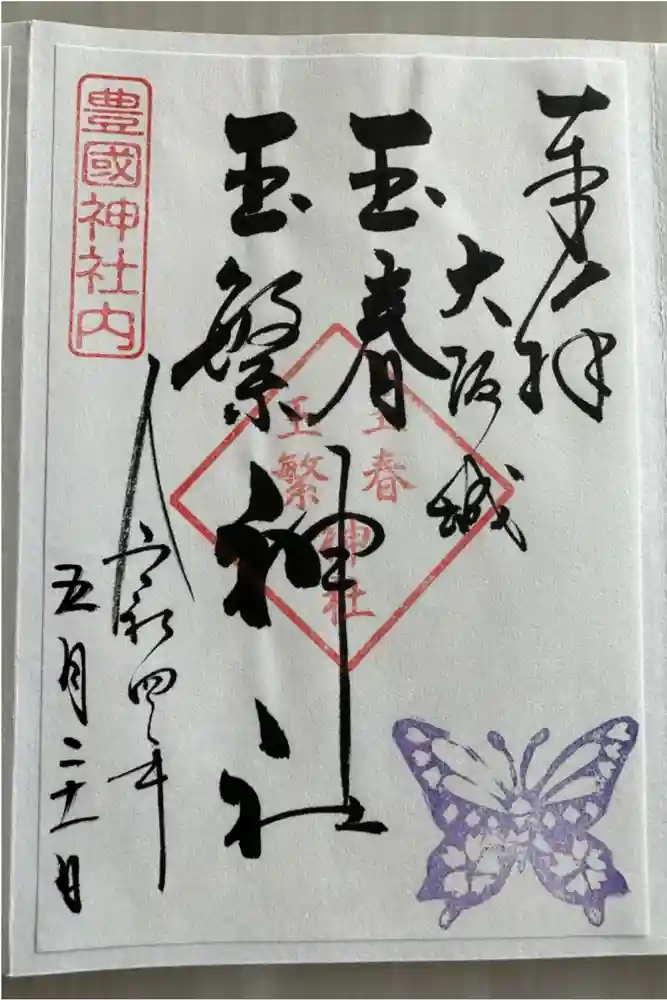 奉拝
大阪城
玉春
玉繁
神社
令和四年
五月二十一日
豊國神社内
玉春
玉繁
神社